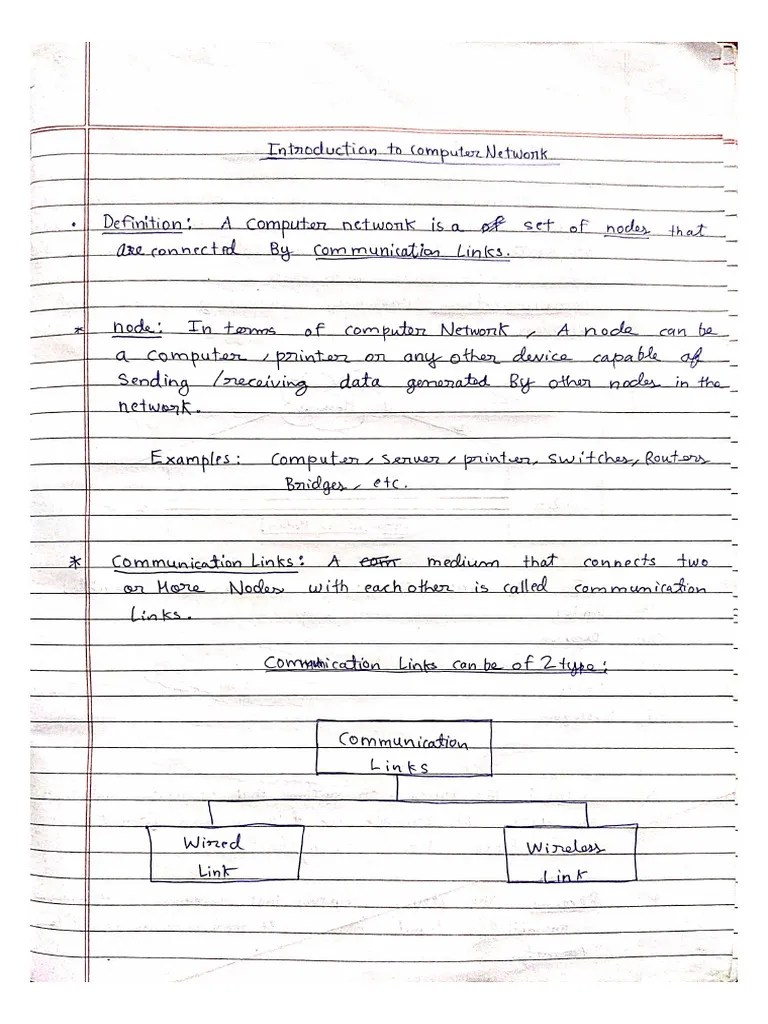 Introduction to Computer Network
• Definition: A Computer network is a of set of nodes that
are connected By Communication Links.
* node: In terms of computer Network, A node can be
a computer, printer or any other device capable of
Sending /receiving data generated By other nodes in the
network.
Examples: Computer, Server, printer, Switches, Routers
Bridges, etc.
* Communication Links: A com medium that connects two
or More Nodes with each other is called communication
Links.
Communication Links can be of 2 type:
Communication
Links
Wired
Link
Wireless
Link